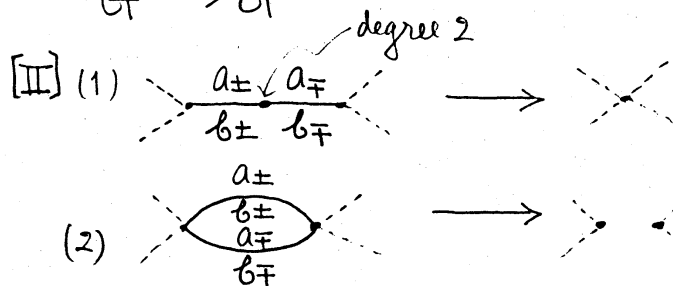 degree 2
[II] (1) a± a∓
b± b∓
a±
b±
(2) a∓
b∓